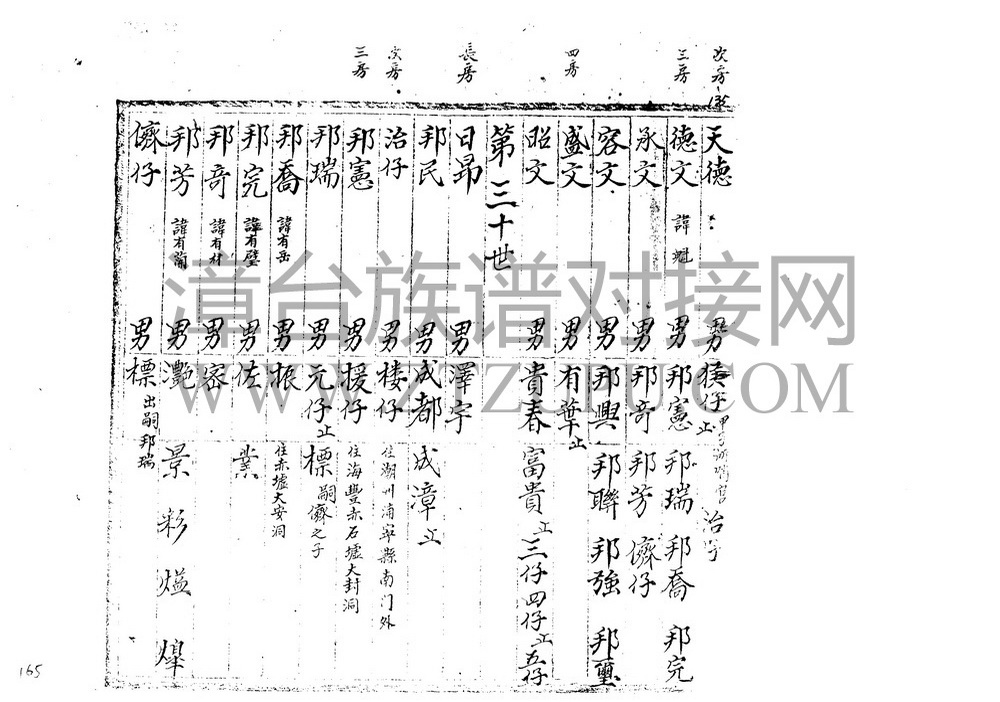 次房
三房
四房
長房
次房
三房
天德 男 猴仔止
德文 諱魁 男 邦憲 邦瑞 邦喬 邦完
承文 男 邦奇 邦芳 儕仔
容文 男 邦興 邦聯 邦強 邦璽
盛文 男 有華止
昭文 男 貴春 富貴止 三仔 四仔止 五仔
第三十世
日昂 男 澤宇
邦民 男 成都 成漳止
治仔 男 棲仔 住潮州浦寧縣南门外
邦憲 男 援仔 住海豐赤石墟大封洞
邦瑞 男 元仔止 標 嗣儕之子
邦喬 諱有岳 男 振 住赤墟大安洞
邦完 諱有璧 男 佐 業
邦奇 諱有材 男 容
邦芳 諱有蘭 男 灔 景 彩 熤 燡
儕仔 男 標 出嗣邦瑞
漳台族谱对接网
WWW.ZTZUPU.COM
165